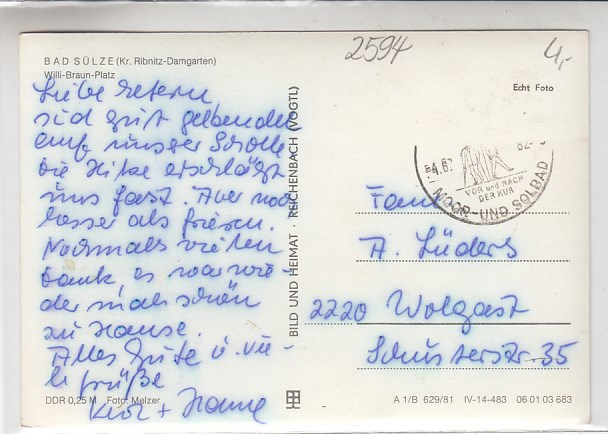 2594
4,-
BAD SÜLZE (Kr. Ribnitz-Damgarten)
Willi-Braun-Platz
Echt Foto
Liebe Eltern,
sind gut gelandet
auf unsser Scholle
die Hitze erschlägt
uns fast. Aber noch
besser als frieren.
Nochmals vielen
Dank, es war wie-
der mals schön
zu Hause.
Alles Gute u. vie-
le Grüße
+ Hanne
BILD UND HEIMAT · REICHENBACH (VOGTL)
VOR und NACH
DER KUR
MOOR- UND SOLBAD
Fam.
A. Lüders
2220 Wolgast
Schusterstr. 35
DDR 0,25 M Foto: Melzer
A 1/B 629/81 IV-14-483 06 01 03 683